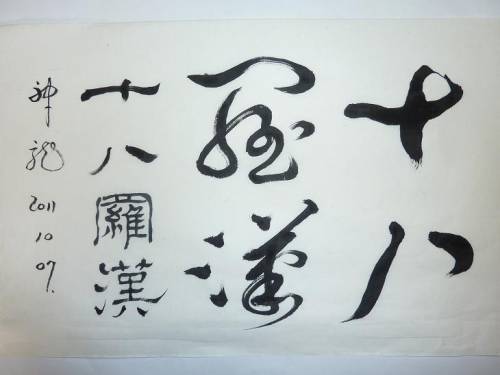 十八
羅漢
十八羅漢
神龍
2011
10
07.